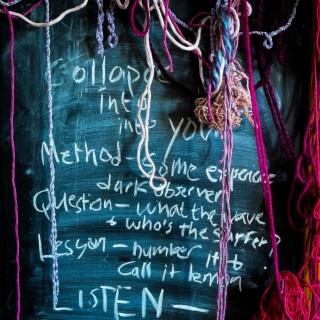 Collapse
into
into you
Method - Some experience
dark observer
Question - what the wave
& who's the surfer?
Lesson - number it &
Call it lemon
LISTEN -